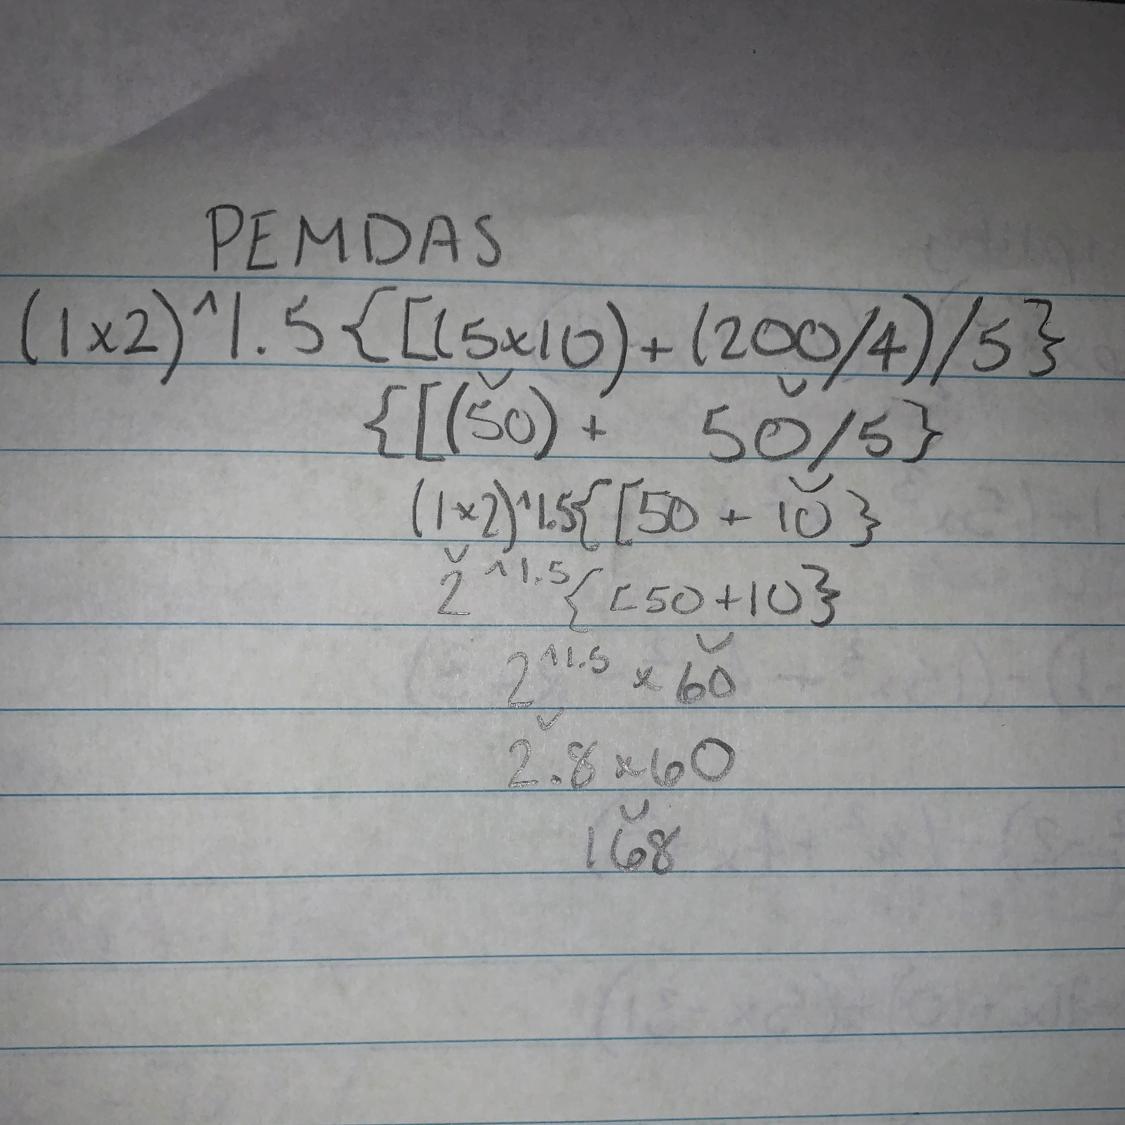 PEMDAS
(1x2)^1.5{[(5x10)+(200/4)/5}
{[(50) + 50/5}
(1x2)^1.5{[50 + 10}
2^1.5{[50+10}
2^1.5 x 60
2.8x60
168